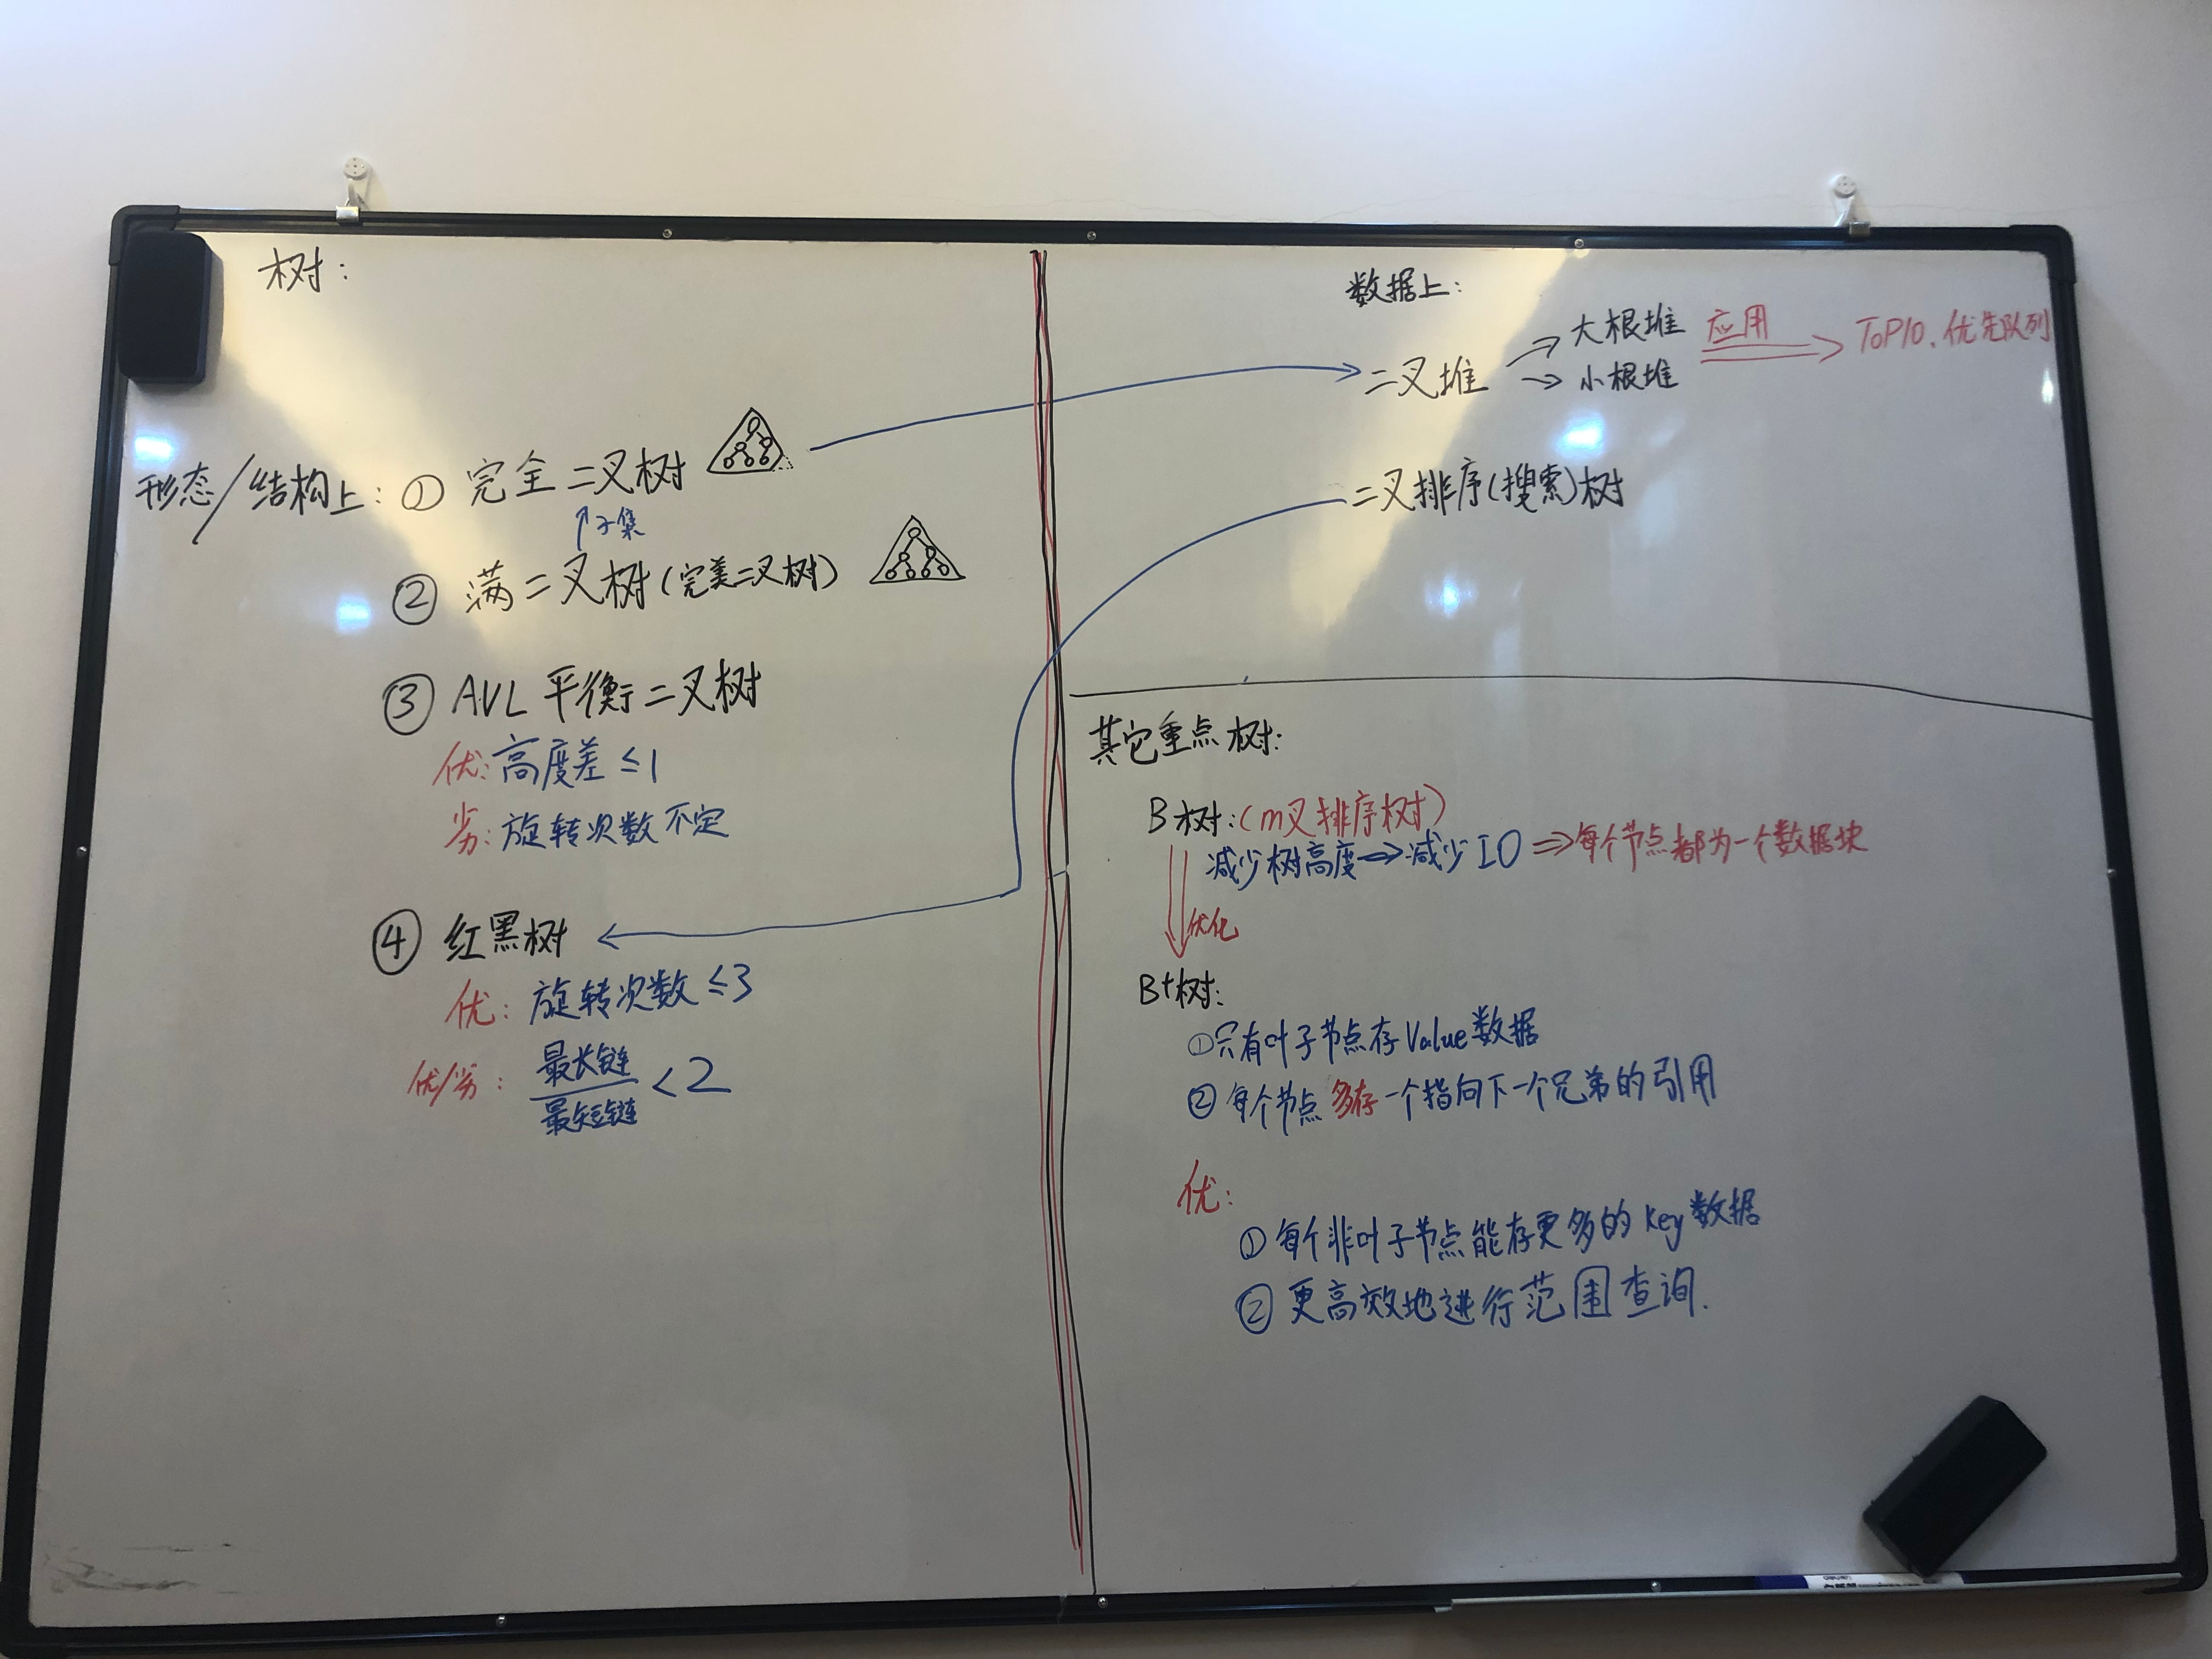 树：
形态/结构上：① 完全二叉树
↑子集
② 满二叉树（完美二叉树）
③ AVL 平衡二叉树
优：高度差≤1
劣：旋转次数不定
④ 红黑树
优：旋转次数≤3
优/劣：最长链/最短链<2
数据上：
二叉堆
大根堆
小根堆
应用
TOP10、优先队列
二叉排序(搜索)树
其它重点树：
B树：(m叉排序树)
减少树高度⇒减少IO⇒每个节点都为一个数据块
优化
B+树：
①只有叶子节点存Value数据
②每个节点多存一个指向下一个兄弟的引用
优：
①每个非叶子节点能存更多的Key数据
②更高效地进行范围查询.